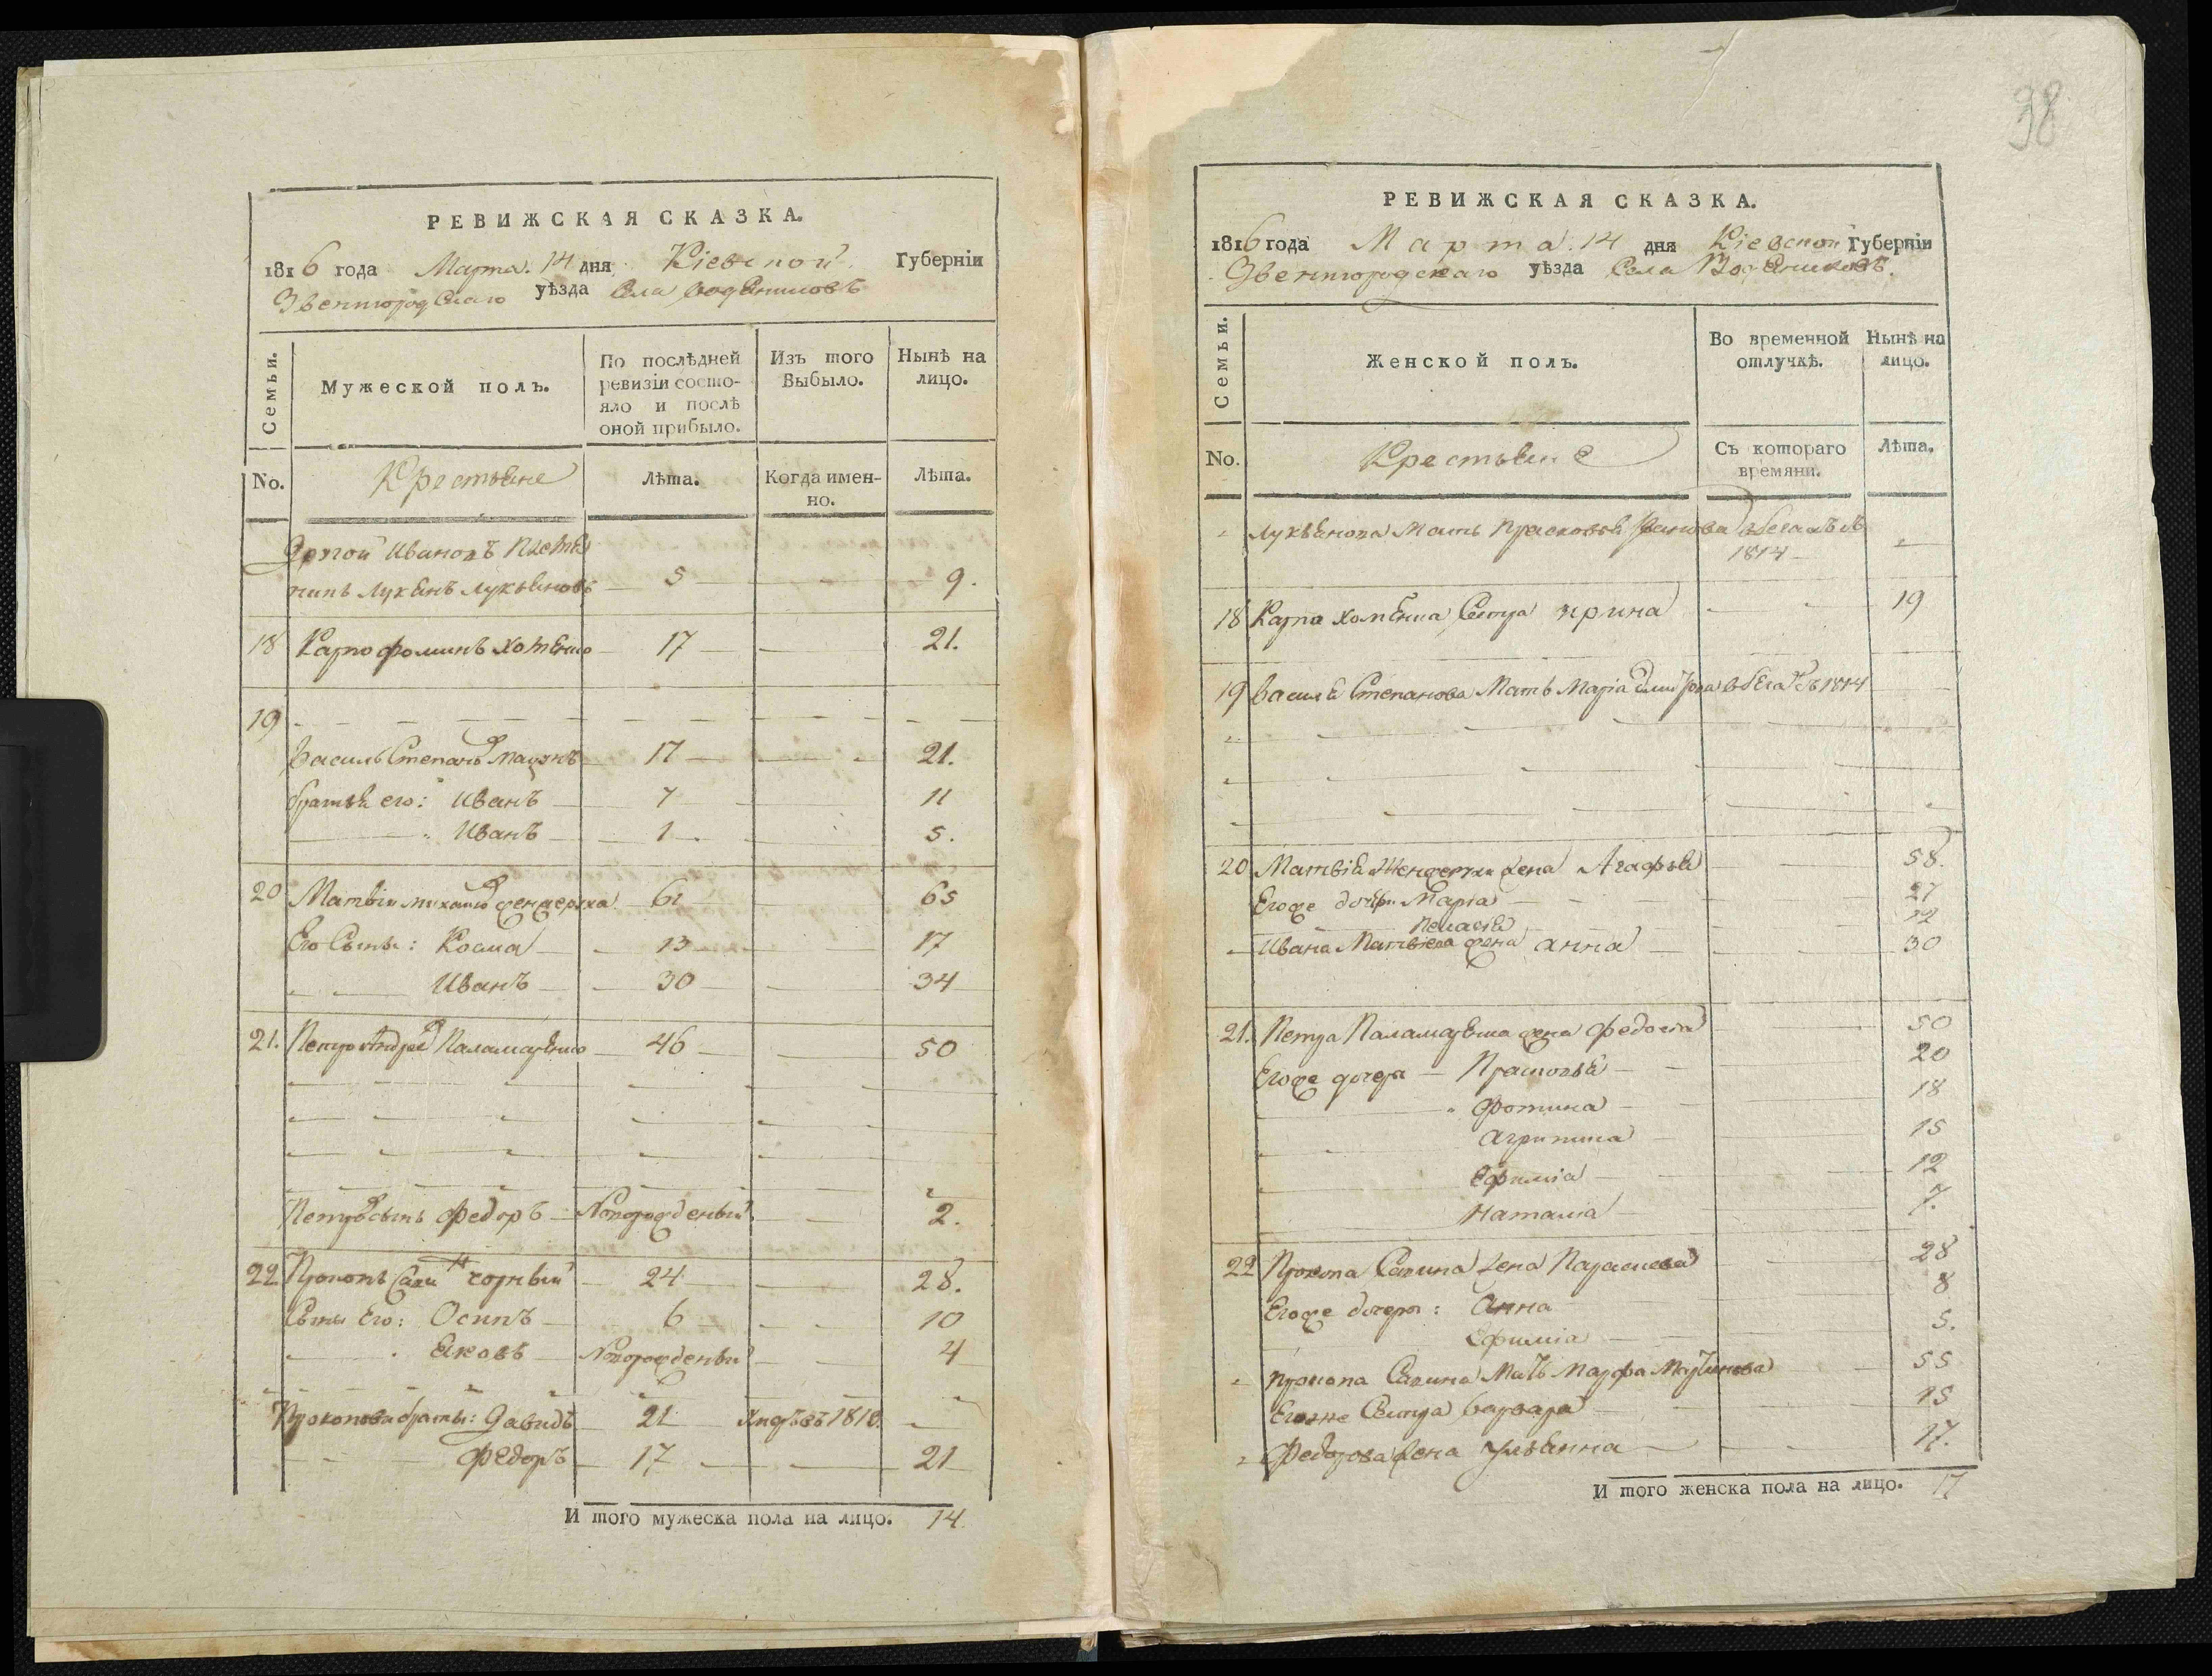 38
РЕВИЖСКАЯ СКАЗКА.
1816 года Марта. 14 дня Кіевской Губерніи
Звенигородскаго уѣзда Села Водяниковъ
Семьи.
Мужеской полъ.
По послѣдней ревизіи состо-яло и послѣ оной прибыло.
Изъ того Выбыло.
Нынѣ на лицо.
No. Крестьяне Лѣта. Когда имен-но. Лѣта.
Другой Ивановъ
Лукьяновъ 5 9.
18 Карпо Фоминъ Хоменко 17 21.
19
Василь Степановъ 17 21.
братья его: Иванъ 7 11
Иванъ 1 5.
20 Матвiй 61 65
Его Сыны: Косма 13 17
Иванъ 30 34
21. Петро Андреевъ Паламаренко 46 50
Петровъ сынъ Федоръ Новорожденый 2.
22 Прокопъ Чорный 24 28.
Сыны Его: Осипъ 6 10
Яковъ Новорожденый 4
Прокопова браты: Давидъ 21 181
Федоръ 17 21
И того мужеска пола на лицо. 14
РЕВИЖСКАЯ СКАЗКА.
1816 года Марта. 14 дня Кіевской Губерніи
Звенигородскаго уѣзда Села Водяниковъ.
Семьи.
Женской полъ.
Во временной отлучкѣ.
Нынѣ на лицо.
No. Крестьяне Съ котораго времяни. Лѣта.
Лукьянова Мать Прасковья
1814
18 Карпа Хоменка Сестра Ирина 19
19 Василя Степанова Мать Марія 1814
20 Матвія жена Агафья 58.
Егоже дочери Марія 27
Пелагія 12
Ивана Матвіева жена Анна 30
21. Петра Паламаренка жена Федосія 50
Егоже дочери Прасковья 20
Фотина 18
Агрипина 15
Ефимія 12
Наталія 7.
22 Прокопа Савина жена Параскева 28
Егоже дочери: Анна 8
Ефимія 5.
Прокопа Савина Мать Марфа 55
Егоже Сестра Варвара 15
Федорова жена Ульянна 17.
И того женска пола на лицо. 17